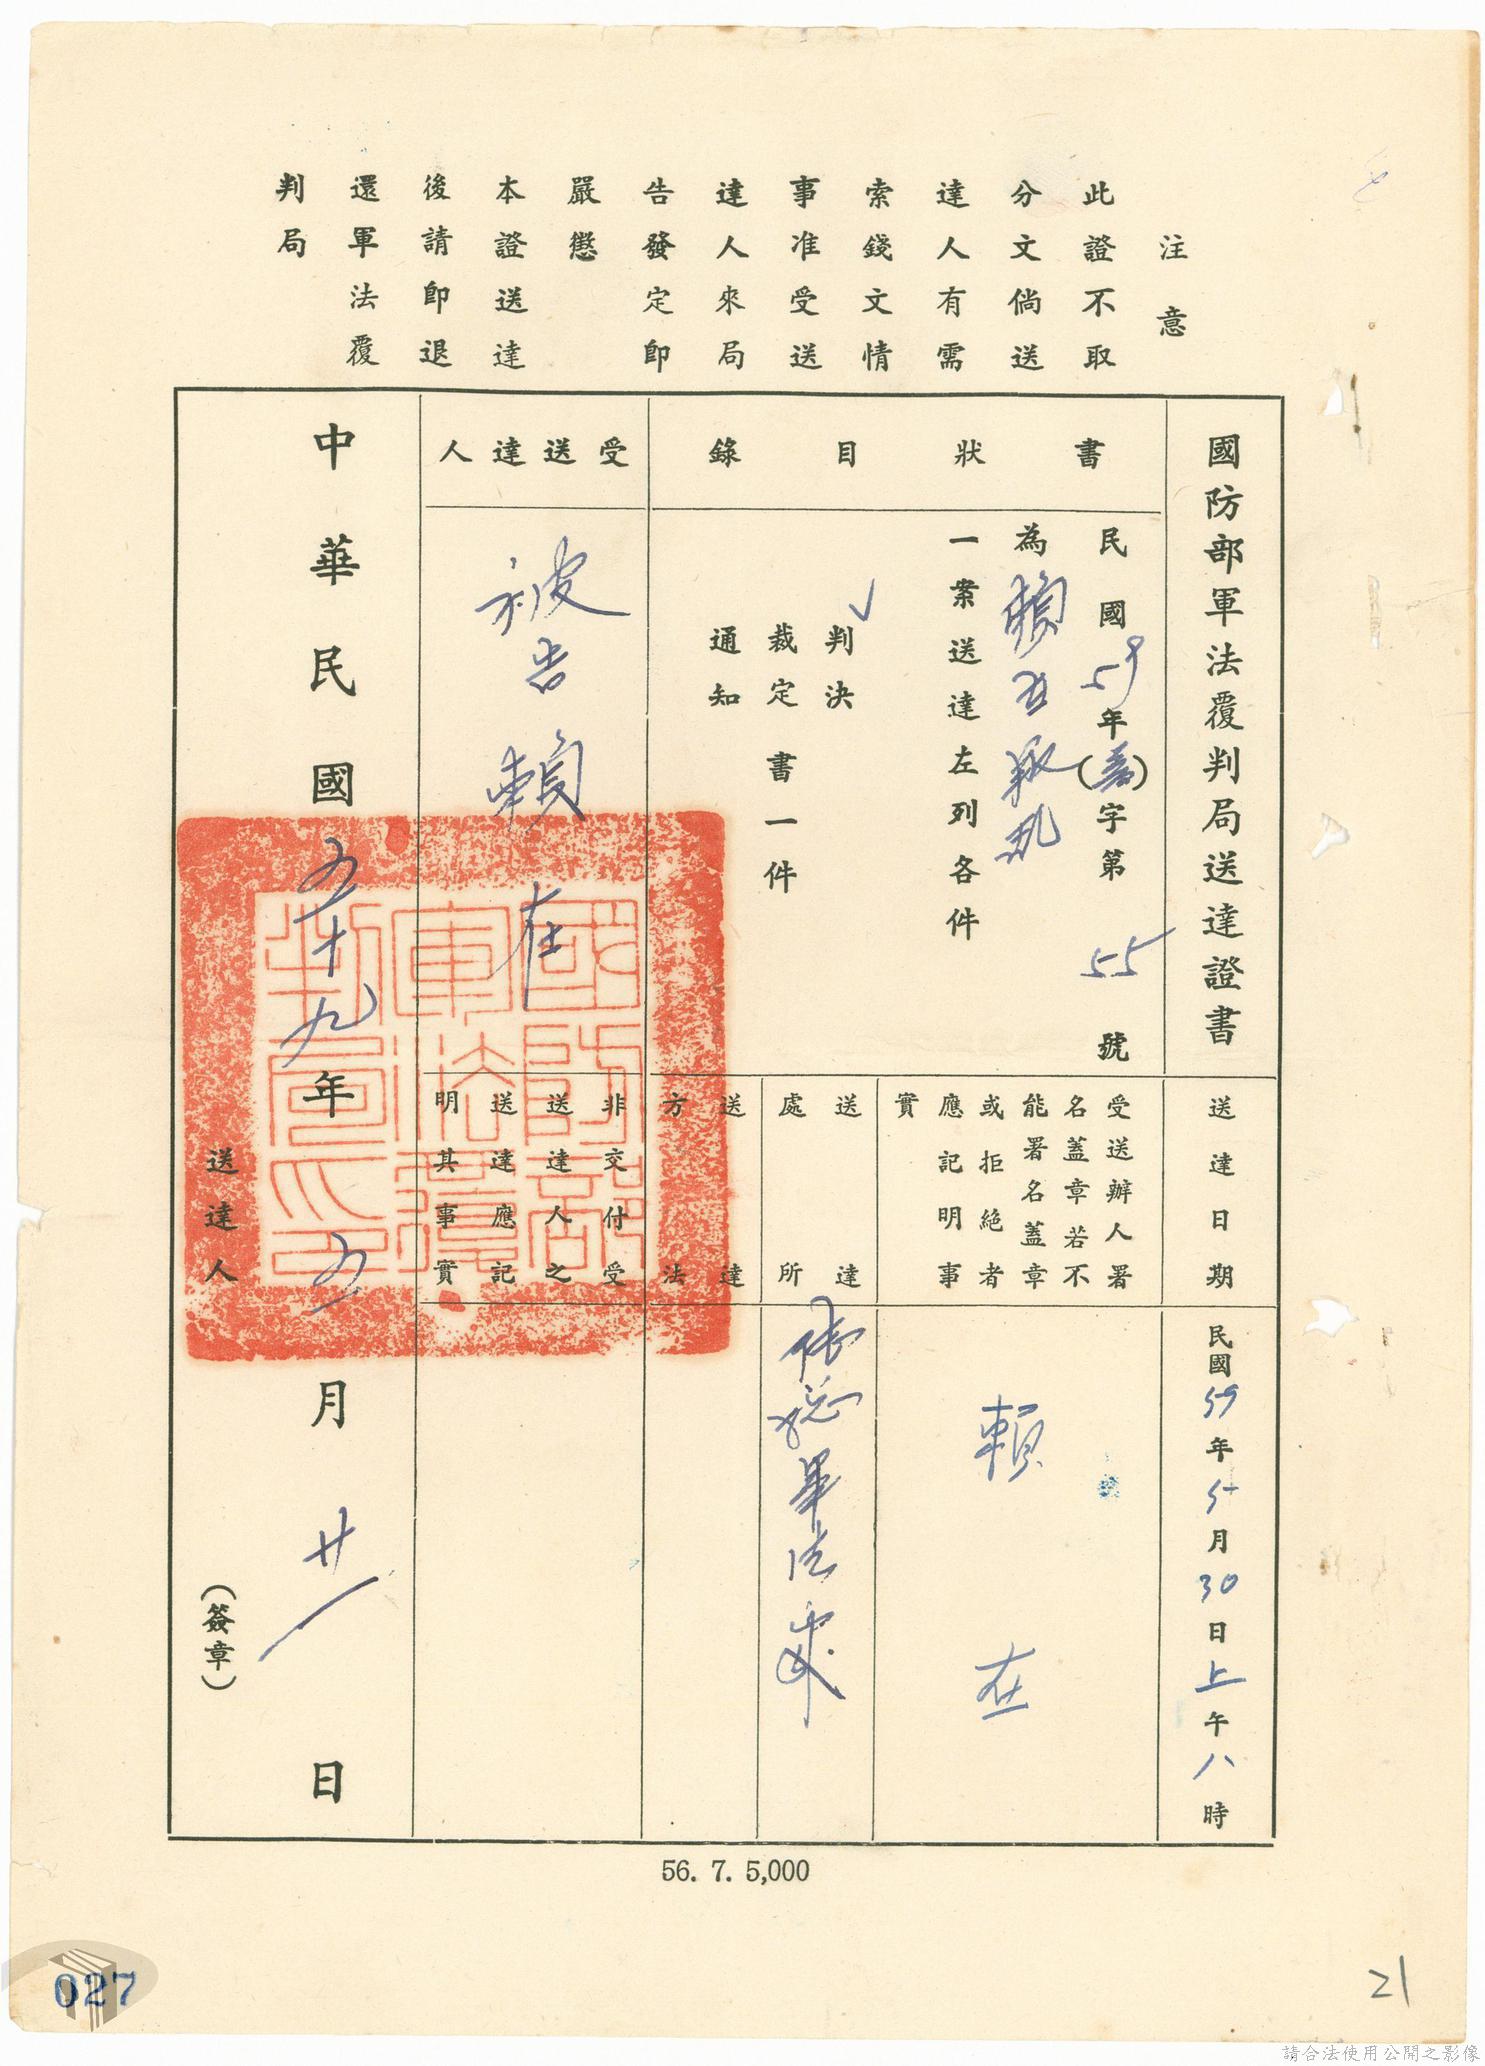 注意
此證不取
分文倘送
達人有需
索錢文情
事准受送
達人來局
告發定即
嚴懲
本證送達
後請即退
還軍法覆
判局
國防部軍法覆判局送達證書
書狀目錄
民國59年()字第55號
為賴在叛亂
一案送達左列各件
判決
裁定書一件
通知
✓
受送達人
被告賴在
送達日期
民國59年5月30日上午八時
受送辦人署
名蓋章若不
能署名蓋章
或拒絕者
應記明事
實
賴在
送達
處所
軍法
送達
方法
非交付受
送達人之
送達應記
明其事實
中華民國五十九年五月廿一日
送達人
(簽章)
國防部
軍法覆
判局印
56. 7. 5,000
027
21
請合法使用公開之影像